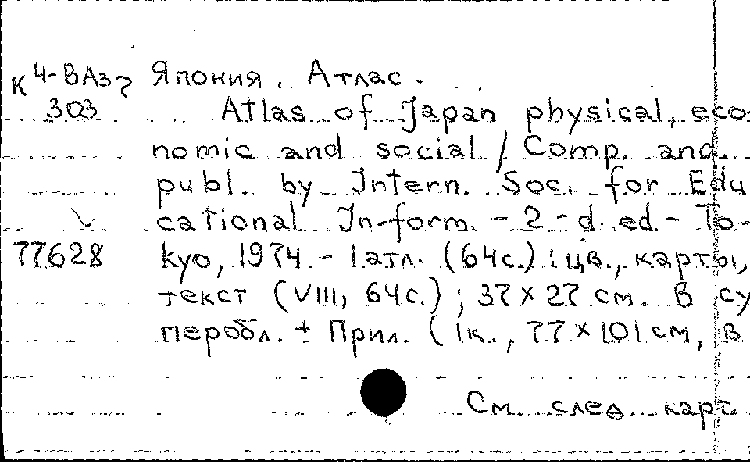 К 4-ВАз7 Япония. Атлас.
303 Atlas of Japan physical, eco-
nomic and social / Comp. and.
publ. by Intern. Soc. for Edu
cational Inform. - 2-d ed. - To-
77628 kyo, 1974. - 1 атл. (64с.) : цв., карты,
текст (VIII, 64с.) ; 37 x 27 см. В су
перобл. + Прил. (1к., 77 x 101 см, в
См. след. карт.